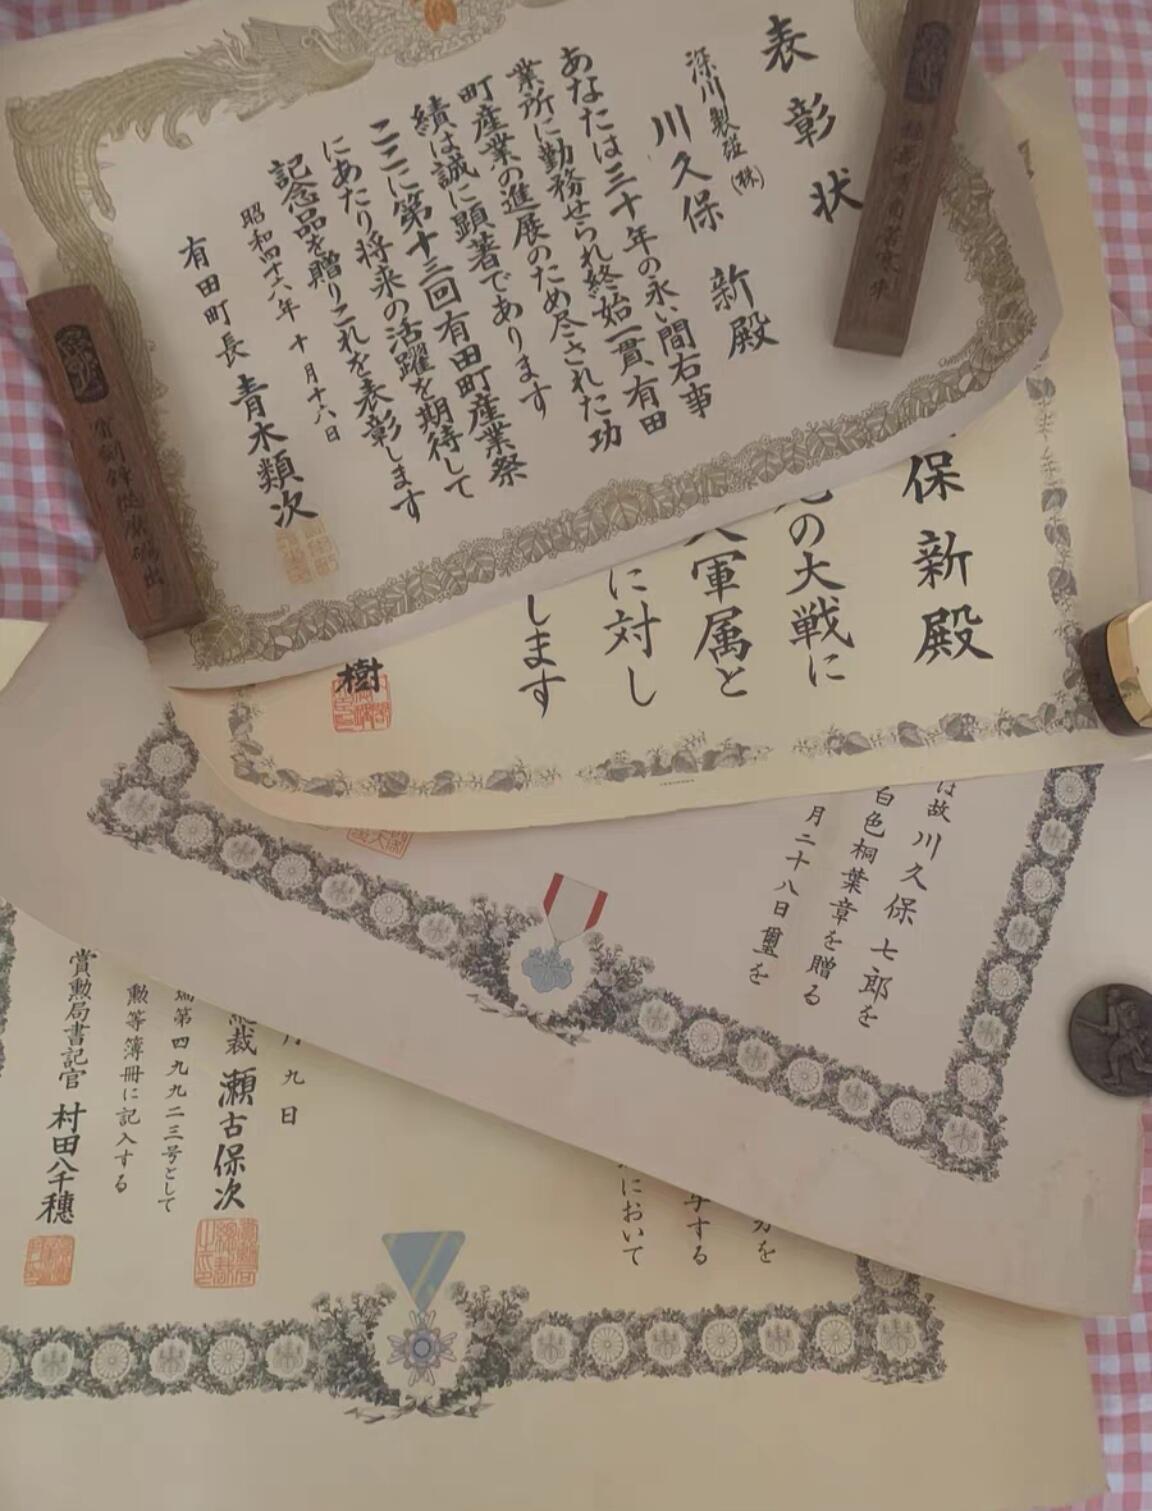 表彰状
深川製磁(株)
川久保 新殿
あなたは三十年の永い間右事
業所に勤務せられ終始一貫有田
町産業の進展のため尽された功
績は誠に顕著であります
ここに第十三回有田町産業祭
にあたり将来の活躍を期待して
記念品を贈りこれを表彰します
昭和四十六年 十月十六日
有田町長 青木類次
保 新 殿
の大戦に
軍属と
に対し
します
樹
は故 川久保七郎を
白色桐葉章を贈る
月二十八日璽を
を
する
において
月九日
総裁 瀬古保次
第四九九二三号として
勲等簿冊に記入する
賞勲局書記官 村田八千穂